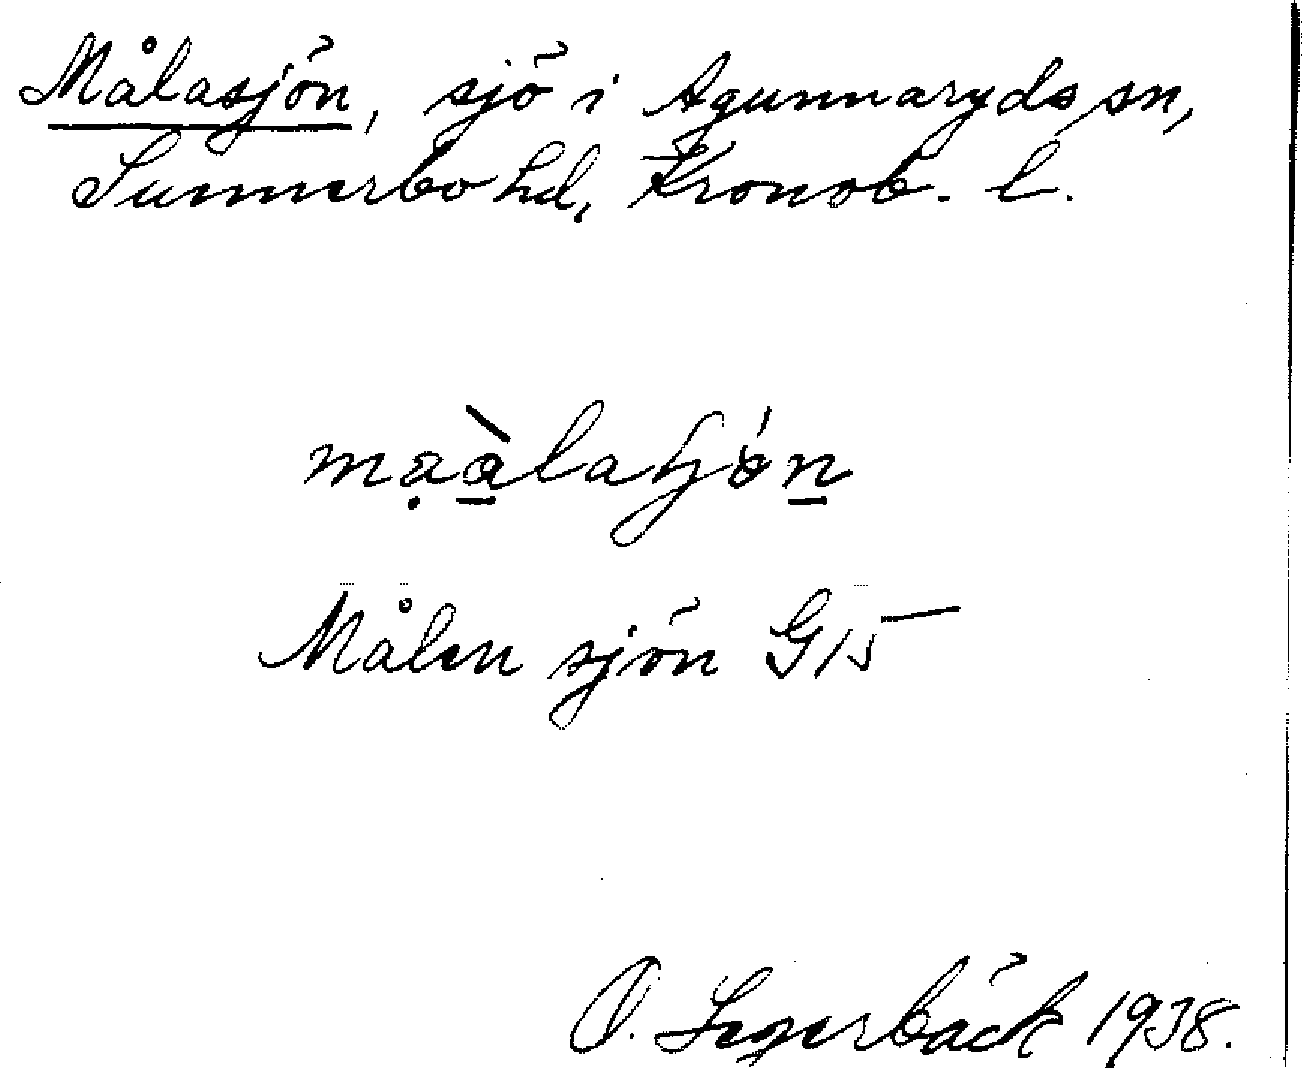 Målasjön, sjö i Agunnaryds sn,
Sunnerbo hd, Kronob. l.
Målen sjön G15
O. Segerbäck 1938.